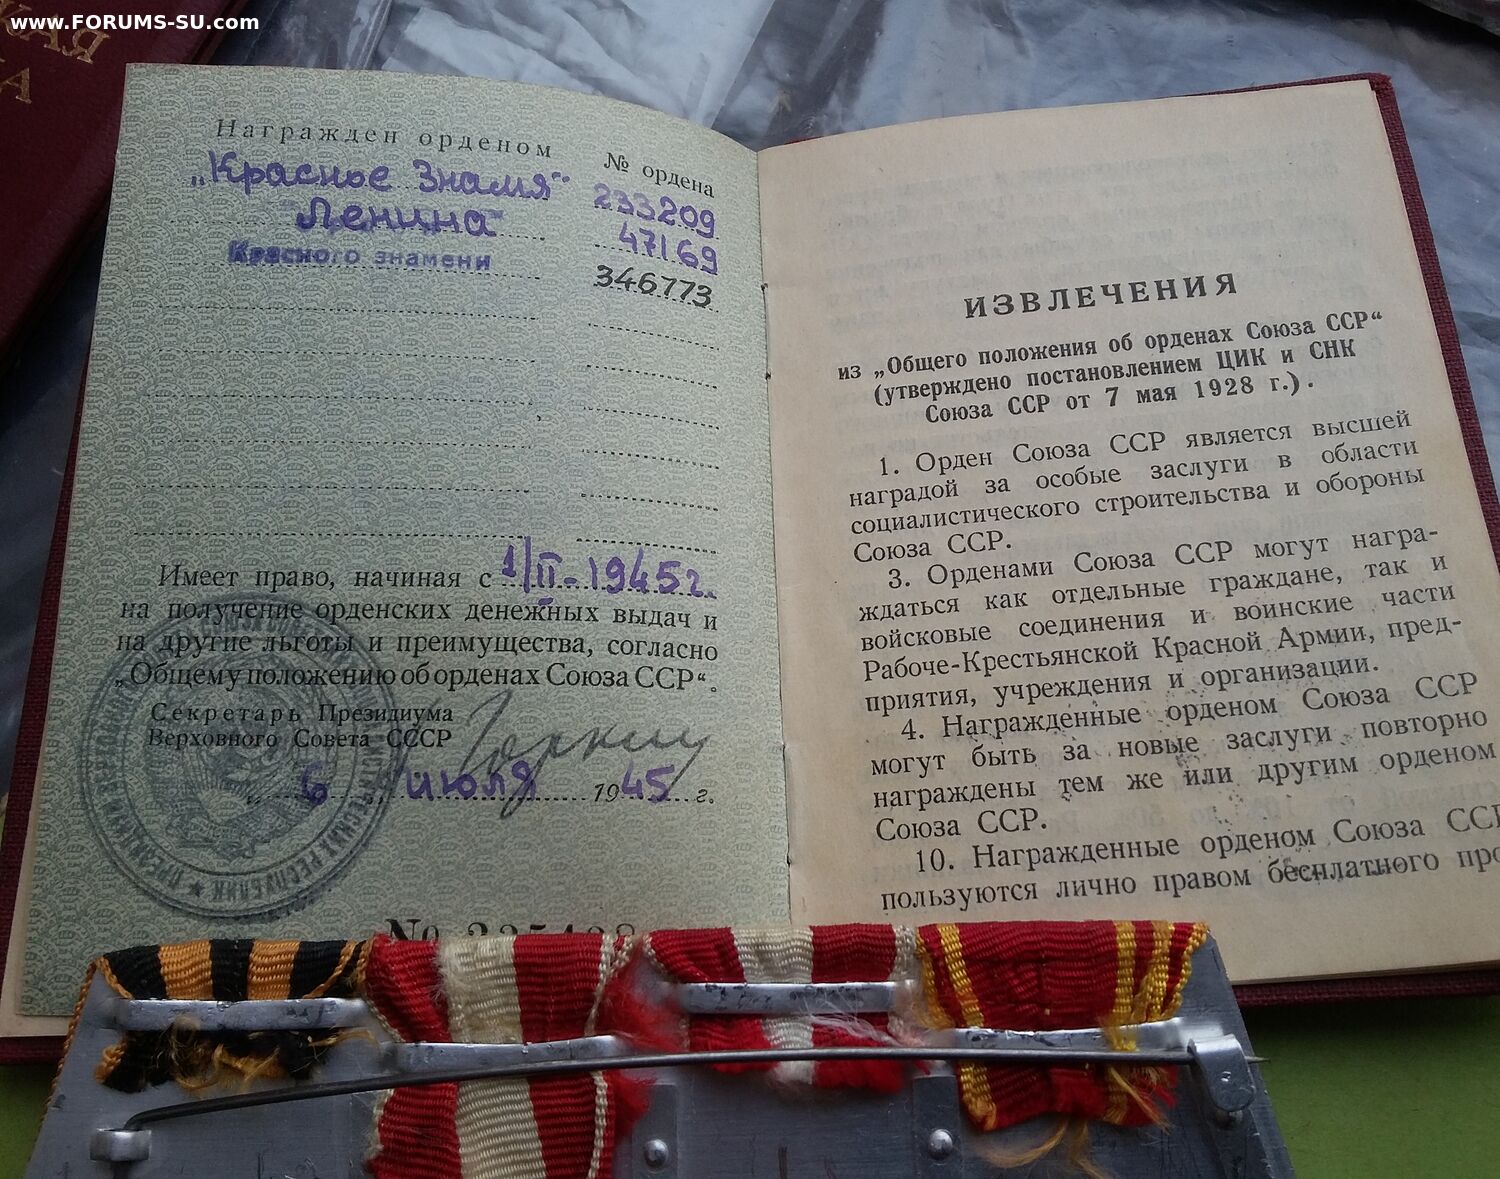 www.FORUMS-SU.com
Награжден орденом
№ ордена
„Красное Знамя“ 233209
Ленина 47169
Красного знамени 346773
Имеет право, начиная с 1/II-1945г.
на получение орденских денежных выдач и
на другие льготы и преимущества, согласно
„Общему положению об орденах Союза ССР“.
Секретарь Президиума
Верховного Совета СССР
6 июля 1945 г.
№
ИЗВЛЕЧЕНИЯ
из „Общего положения об орденах Союза ССР“
(утверждено постановлением ЦИК и СНК
Союза ССР от 7 мая 1928 г.).
1. Орден Союза ССР является высшей
наградой за особые заслуги в области
социалистического строительства и обороны
Союза ССР.
3. Орденами Союза ССР могут награ-
ждаться как отдельные граждане, так и
войсковые соединения и воинские части
Рабоче-Крестьянской Красной Армии, пред-
приятия, учреждения и организации.
4. Награжденные орденом Союза ССР
могут быть за новые заслуги повторно
награждены тем же или другим орденом
Союза ССР.
10. Награжденные орденом Союза ССР
пользуются лично правом бесплатного про